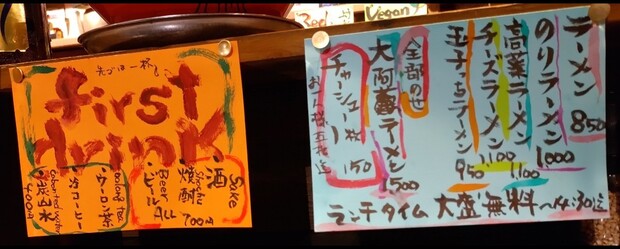 Vegan
先づは一杯!
first
drink
・酒 Sake
・焼酎 Shochu
・ビール Beer
ALL 700円
・ウーロン茶 oolong tea
・冷コーヒー
・炭酸水 carbonated water
400円
ラーメン 850
のりラーメン 1000
高菜ラーメン 1,100
チーズラーメン 1,100
玉子っちラーメン 950
全部のせ
大阿蘇ラーメン 1500
チャーシュー一枚 150
お一人様五枚迄
ランチタイム 大盛無料 〜14:30迄